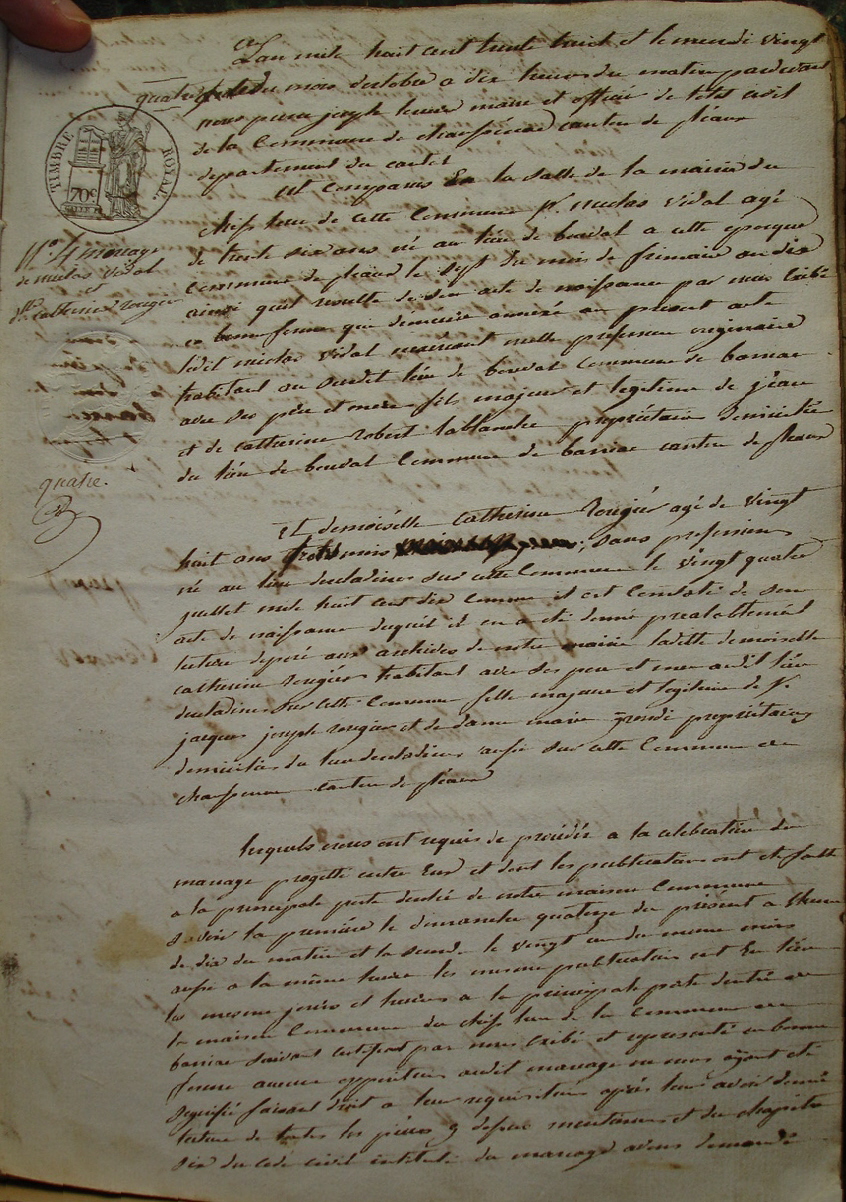 L'an mile huit cent trente huit et le mercredi vingt
quatre du mois doctobre a dix heures du matin pardevant
nous pierre joseph maire et officier de letat civil
de la Commune de chaussenac canton de pleaux
departement du cantal
est comparu En la salle de la mairie du
chef lieu de cette Commune Sr. nicolas vidal agé
de trente six ans né au lieu de bouval a cette epoque
commune de pleaux le sept du mois de frimaire an dix
ainsi quil resulte de son acte de naissance par nous
en bonne forme qui demeure annexé au présent acte
ledit nicolas vidal nulle profession originaire
habitant au susdit lieu de bouval Commune de barriac
avec ses père et mere fils majeur et legitime de jean
et de catherine Robert lablanche propriétaire domicilié
du lieu de bouval Commune de barriac canton de pleaux
TIMBRE ROYAL.
70c
No. 4 mariage
de nicolas vidal
et
dlle catherine rougier
quatre.
et demoiselle catherine Rougier agé de vingt
huit ans trois mois sans profession
né au lieu descladines sur cette Commune le vingt quatre
juillet mile huit cent dix Comme il est Constaté de son
acte de naissance duquel il en a été donné prealablement
lecture deposé aux archives de notre mairie ladite demoiselle
catherine rougier habitant avec ses pere et mere audit lieu
descladines sur cette Commune fille majeure et legitime de Sr.
jacques joseph rougier et de dame marie propriétaires
domiciliés du lieu descladines aussi sur cette Commune de
chaussenac canton de pleaux
lesquels nous ont requis de procéder a la celebration du
mariage progetté entre Eux et dont les publications ont été faites
a la principale porte dentrée de notre maison Commune
savoir la première le dimanche quatorze du présent a lheure
de dix du matin et la seconde le vingt un du meme mois
aussi a la même heure les mesme publications ont Eu lieu
les mesme jours et heures a la principale porte dentrée de
la maison Commune du chef lieu de la Commune de
barriac suivant certificat par nous et representé en bonne
forme aucune opposition audit mariage ne nous ayant eté
signifié faisant droit a leur requisition après leur avoir donné
lecture de toutes les pièces cy dessus mentionnés et du chapitre
six du code civil intitulé du mariage avons demandé